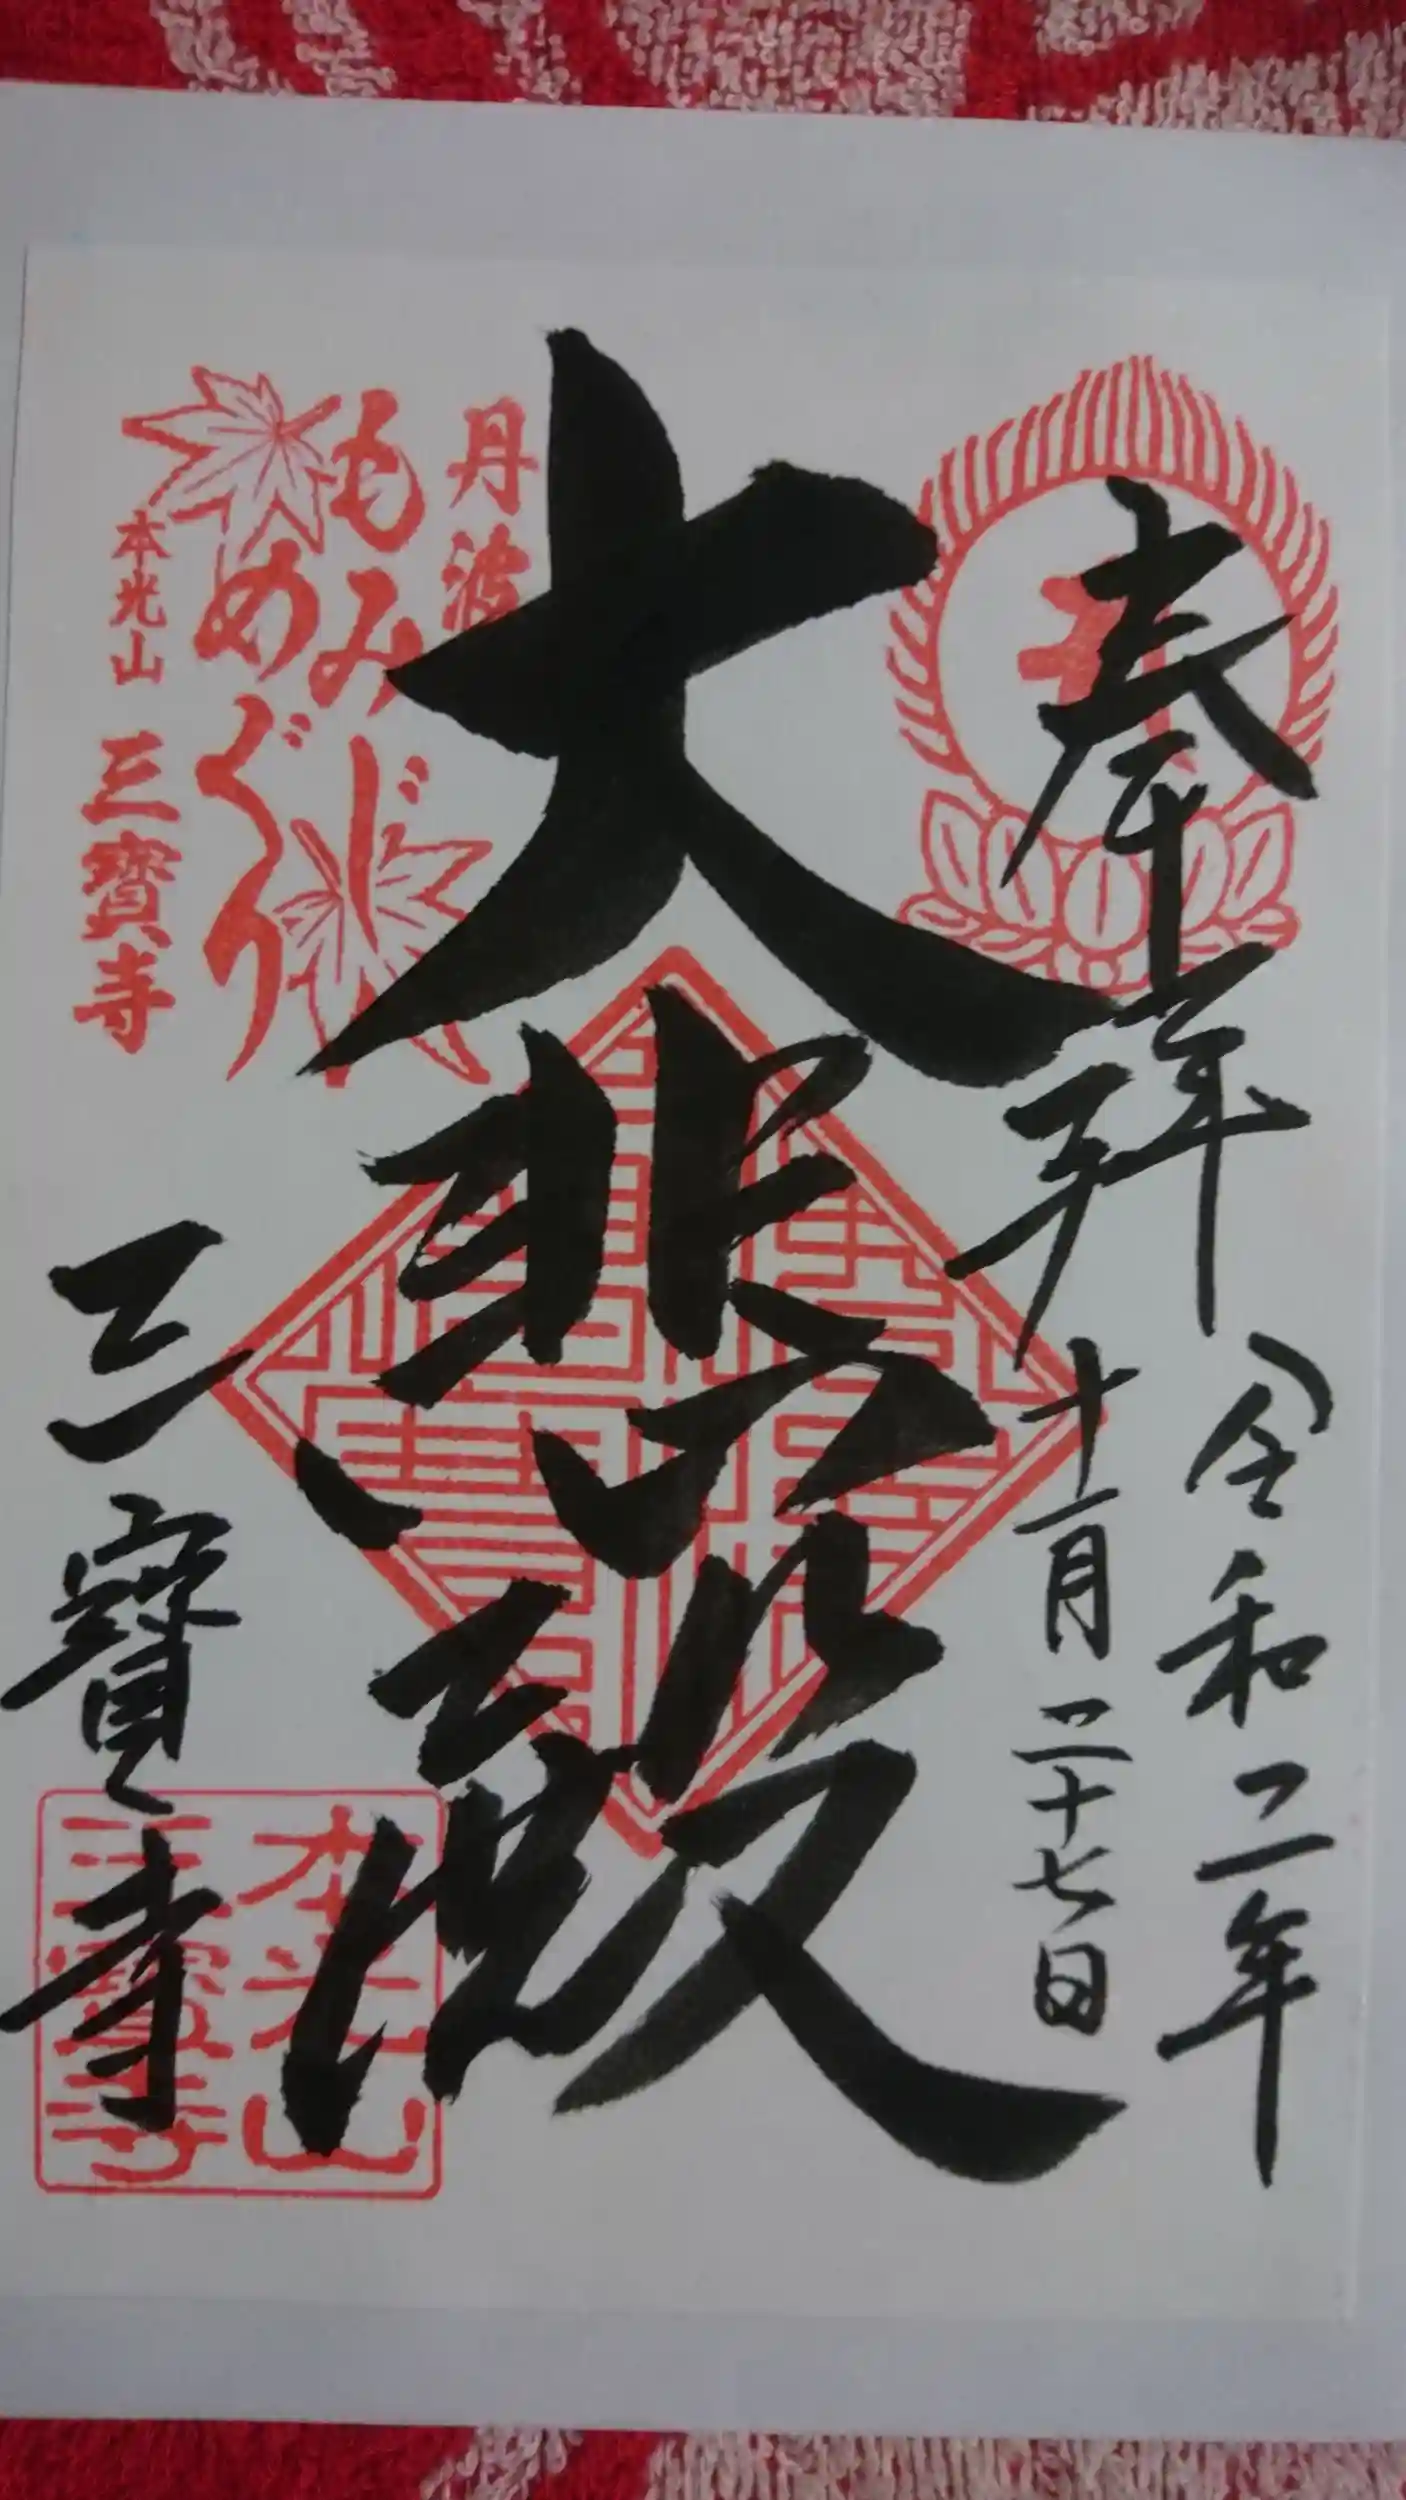 奉拝
令和二年
十一月二十七日
大悲殿
丹波
もみじ
めぐり
本光山 三寳寺
三寳寺
本光山
三寳寺